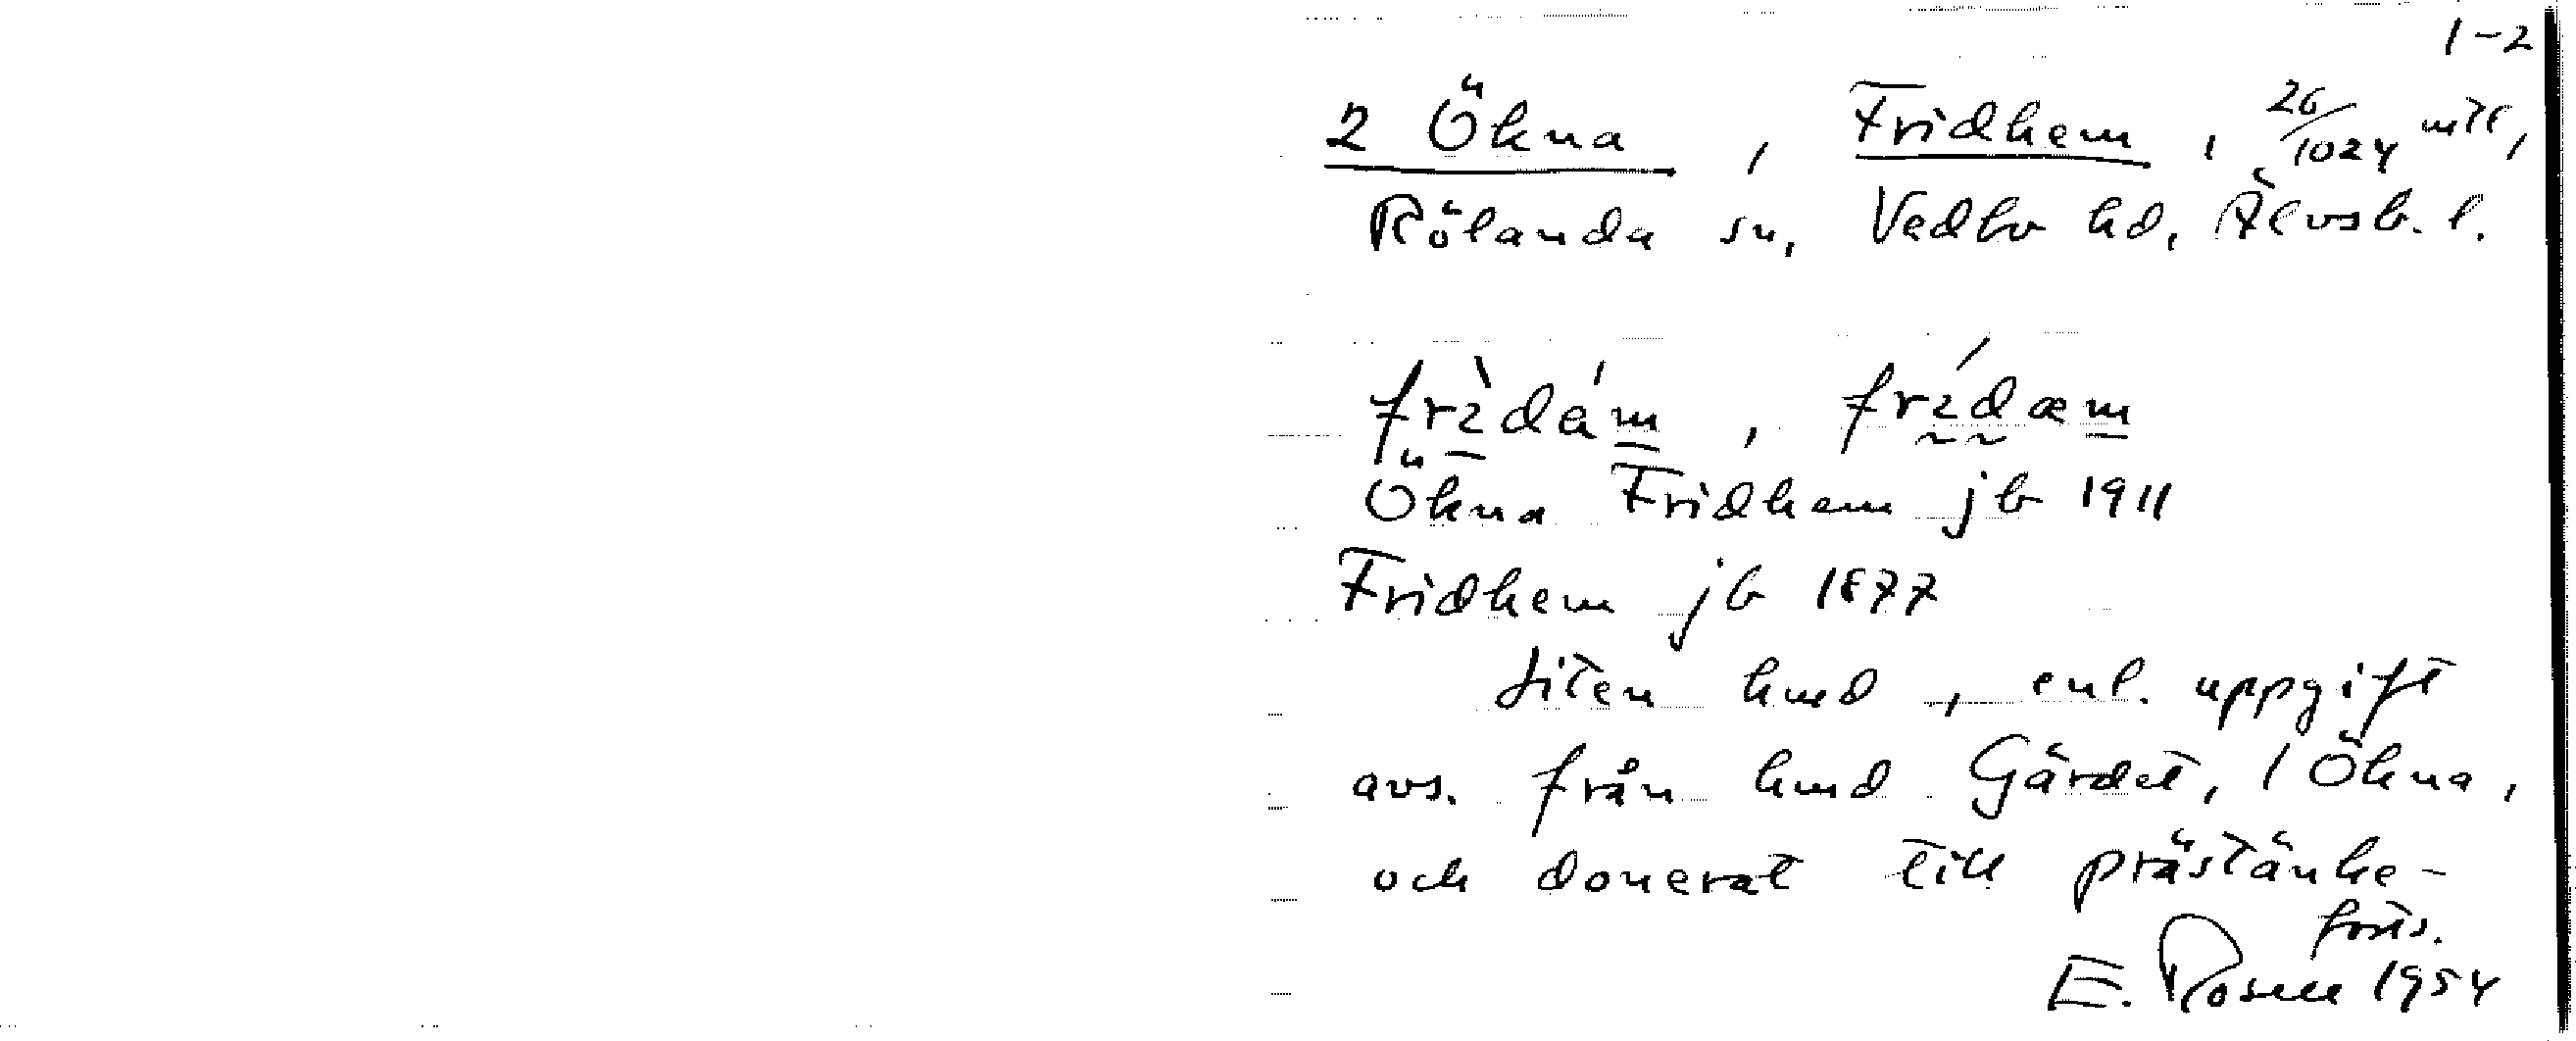 1-2
2 Ökna, Fridhem, 26/1024 mtl,
Rölanda sn, Vedbo hd, Älvsb. l.
Ökna Fridhem jb 1911
Fridhem jb 1877
Liten hmd, enl. uppgift
avs. från hmd Gärdet, 1 Ökna,
och donerat till prästänke-
forts.
E. Rosell 1954